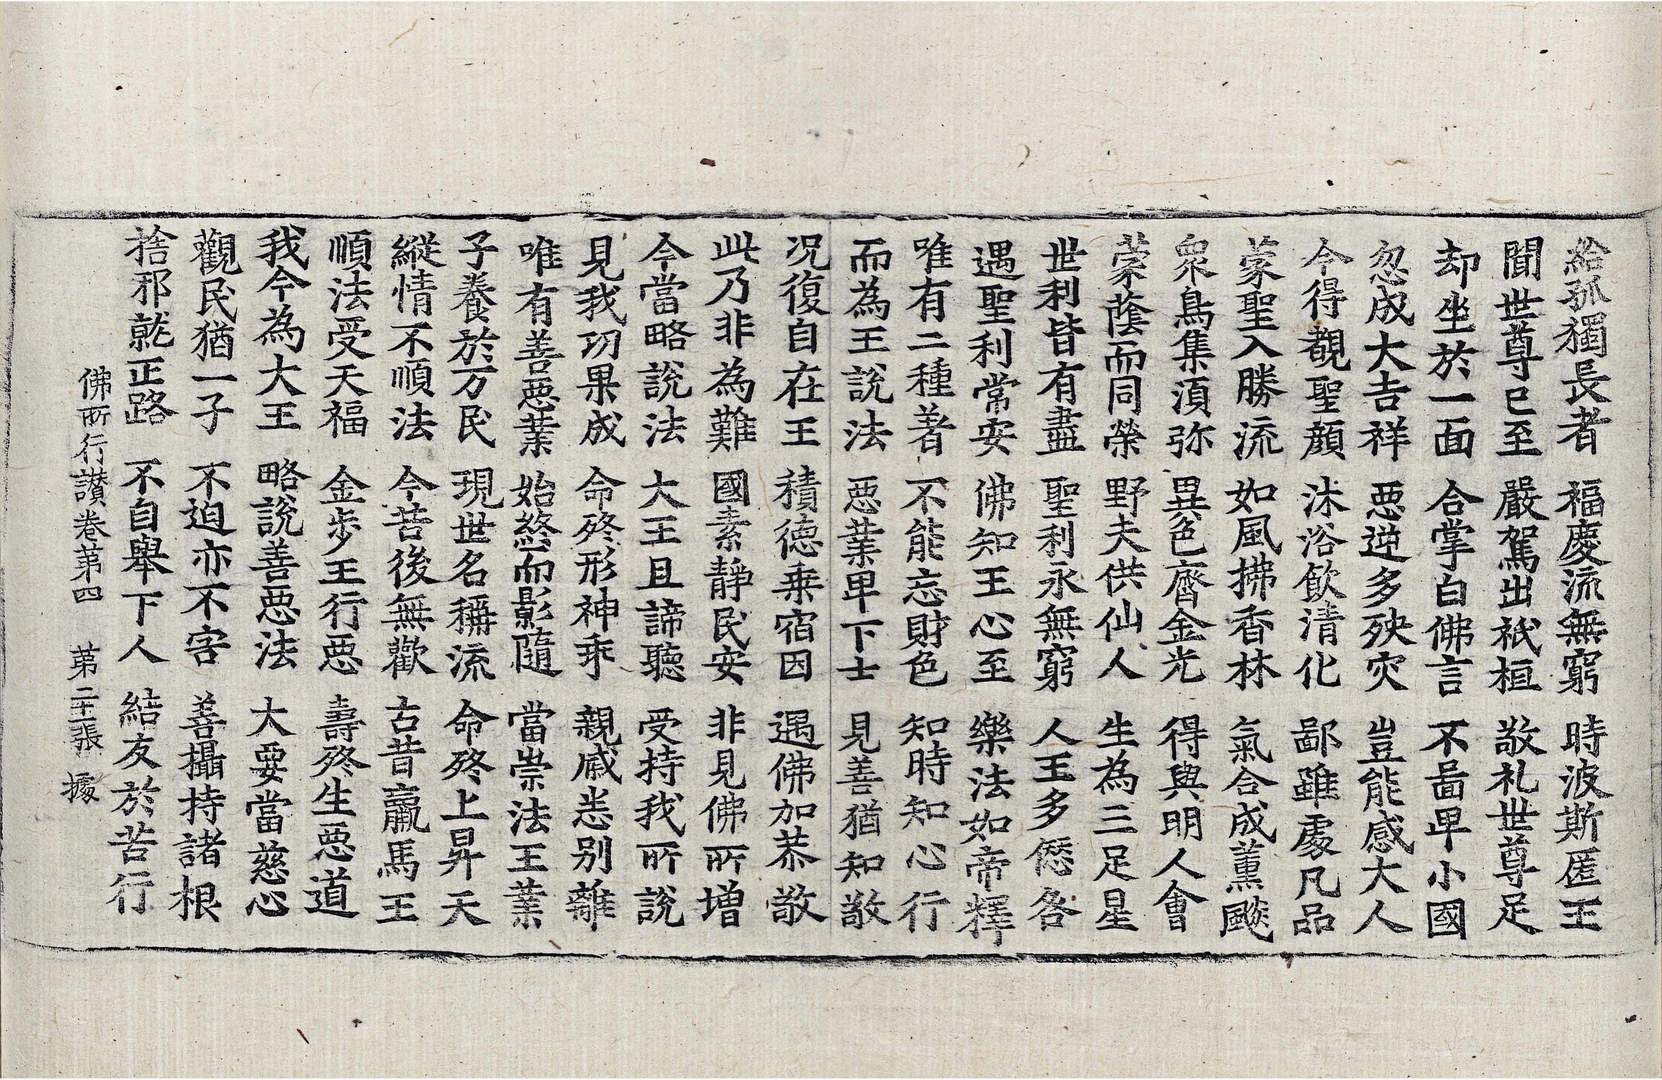 給孤獨長者 福慶流無窮 時波斯匿王
聞世尊已至 嚴駕出祇桓 敬礼世尊足
却坐於一面 合掌白佛言 不啚卑小國
忽成大吉祥 惡逆多殃灾 豈能感大人
今得覩聖顔 沐浴飲清化 鄙雖處凡品
蒙聖入勝流 如風拂香林 氣合成薰飈
衆鳥集湏弥 異色齊金光 得與明人會
蒙蔭而同榮 野夫供仙人 生為三足星
世利皆有盡 聖利永無窮 人王多愆咎
遇聖利常安 佛知王心至 樂法如帝釋
唯有二種著 不能忘財色 知時知心行
而為王說法 惡業卑下士 見善猶知敬
况復自在王 積德乗宿因 遇佛加恭敬
此乃非為難 國素靜民安 非見佛所増
今當略說法 大王且諦聽 受持我所說
見我功果成 命終形神乖 親戚悉别離
唯有善惡業 始終而影隨 當崇法王業
子養於万民 現世名稱流 命終上昇天
縱情不順法 今苦後無歡 古昔羸馬王
順法受天福 金步王行惡 壽終生惡道
我今為大王 略說善惡法 大要當慈心
觀民猶一子 不迫亦不害 善攝持諸根
捨邪就正路 不自舉下人 結友於苦行
佛所行讃卷第四 第二十一張 據